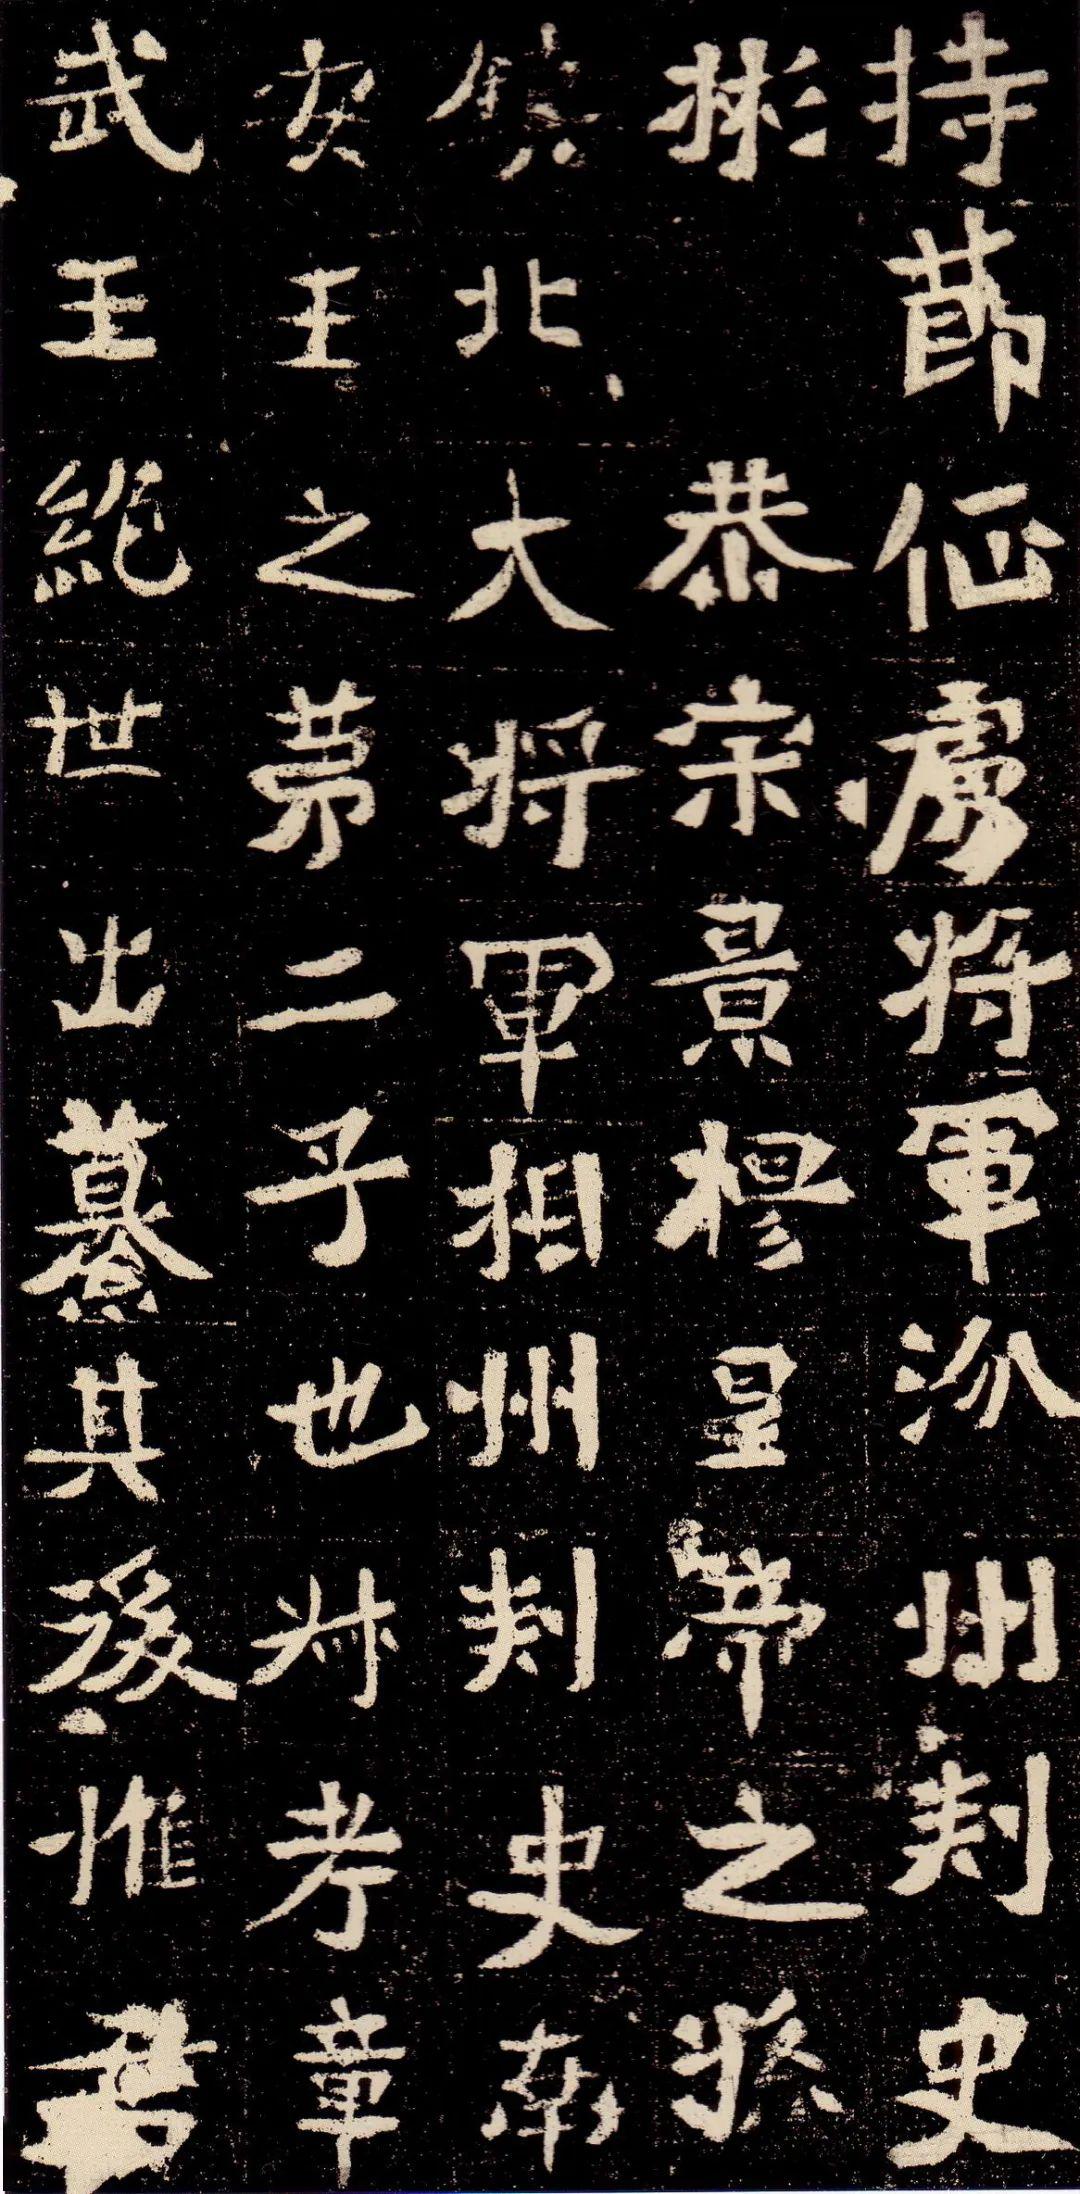 持節征虜將軍汾州刺史
彬 恭宗景穆皇帝之孫
鎮北大將軍相州刺史南
安王之第二子也叔考章
武王絶世出纂其後惟君